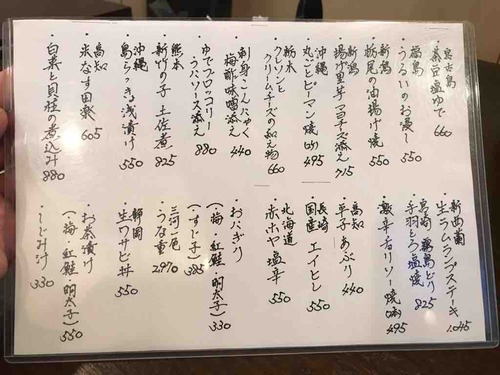 ・宮古島
茶豆塩ゆで 660
・福島
うるいのお浸し 550
・新潟
栃尾の油揚げ焼 550
・新潟
揚げ里芋マヨチーズ添え 715
・沖縄
丸ごとピーマン焼(4ケ) 495
・栃木
クレソンと
クリームチーズの和え物 660
・刺身こんにゃく
梅酢味噌添え 440
・ゆでブロッコリー
ウバソース添え 880
・熊本
新竹の子 土佐煮 825
・沖縄
島らっきょ浅漬け 550
・高知
米なす田楽 605
・白菜と貝柱の煮込み 880
・新西蘭
生ラムランプステーキ 1,045
・宮崎 霧島どり
手羽とろ塩焼 825
・激辛チリソー焼 495
・高知
草子あぶり 440
・長崎
国産エイヒレ 550
・北海道
赤ホヤ塩辛 550
・おにぎり
(・梅・紅鮭・明太子) 330
(・すじ子) 385
・三河一色
うな重 2,970
・静岡
生ワサビ丼 550
・お茶漬け
(・梅・紅鮭・明太子) 550
・しじみ汁 330